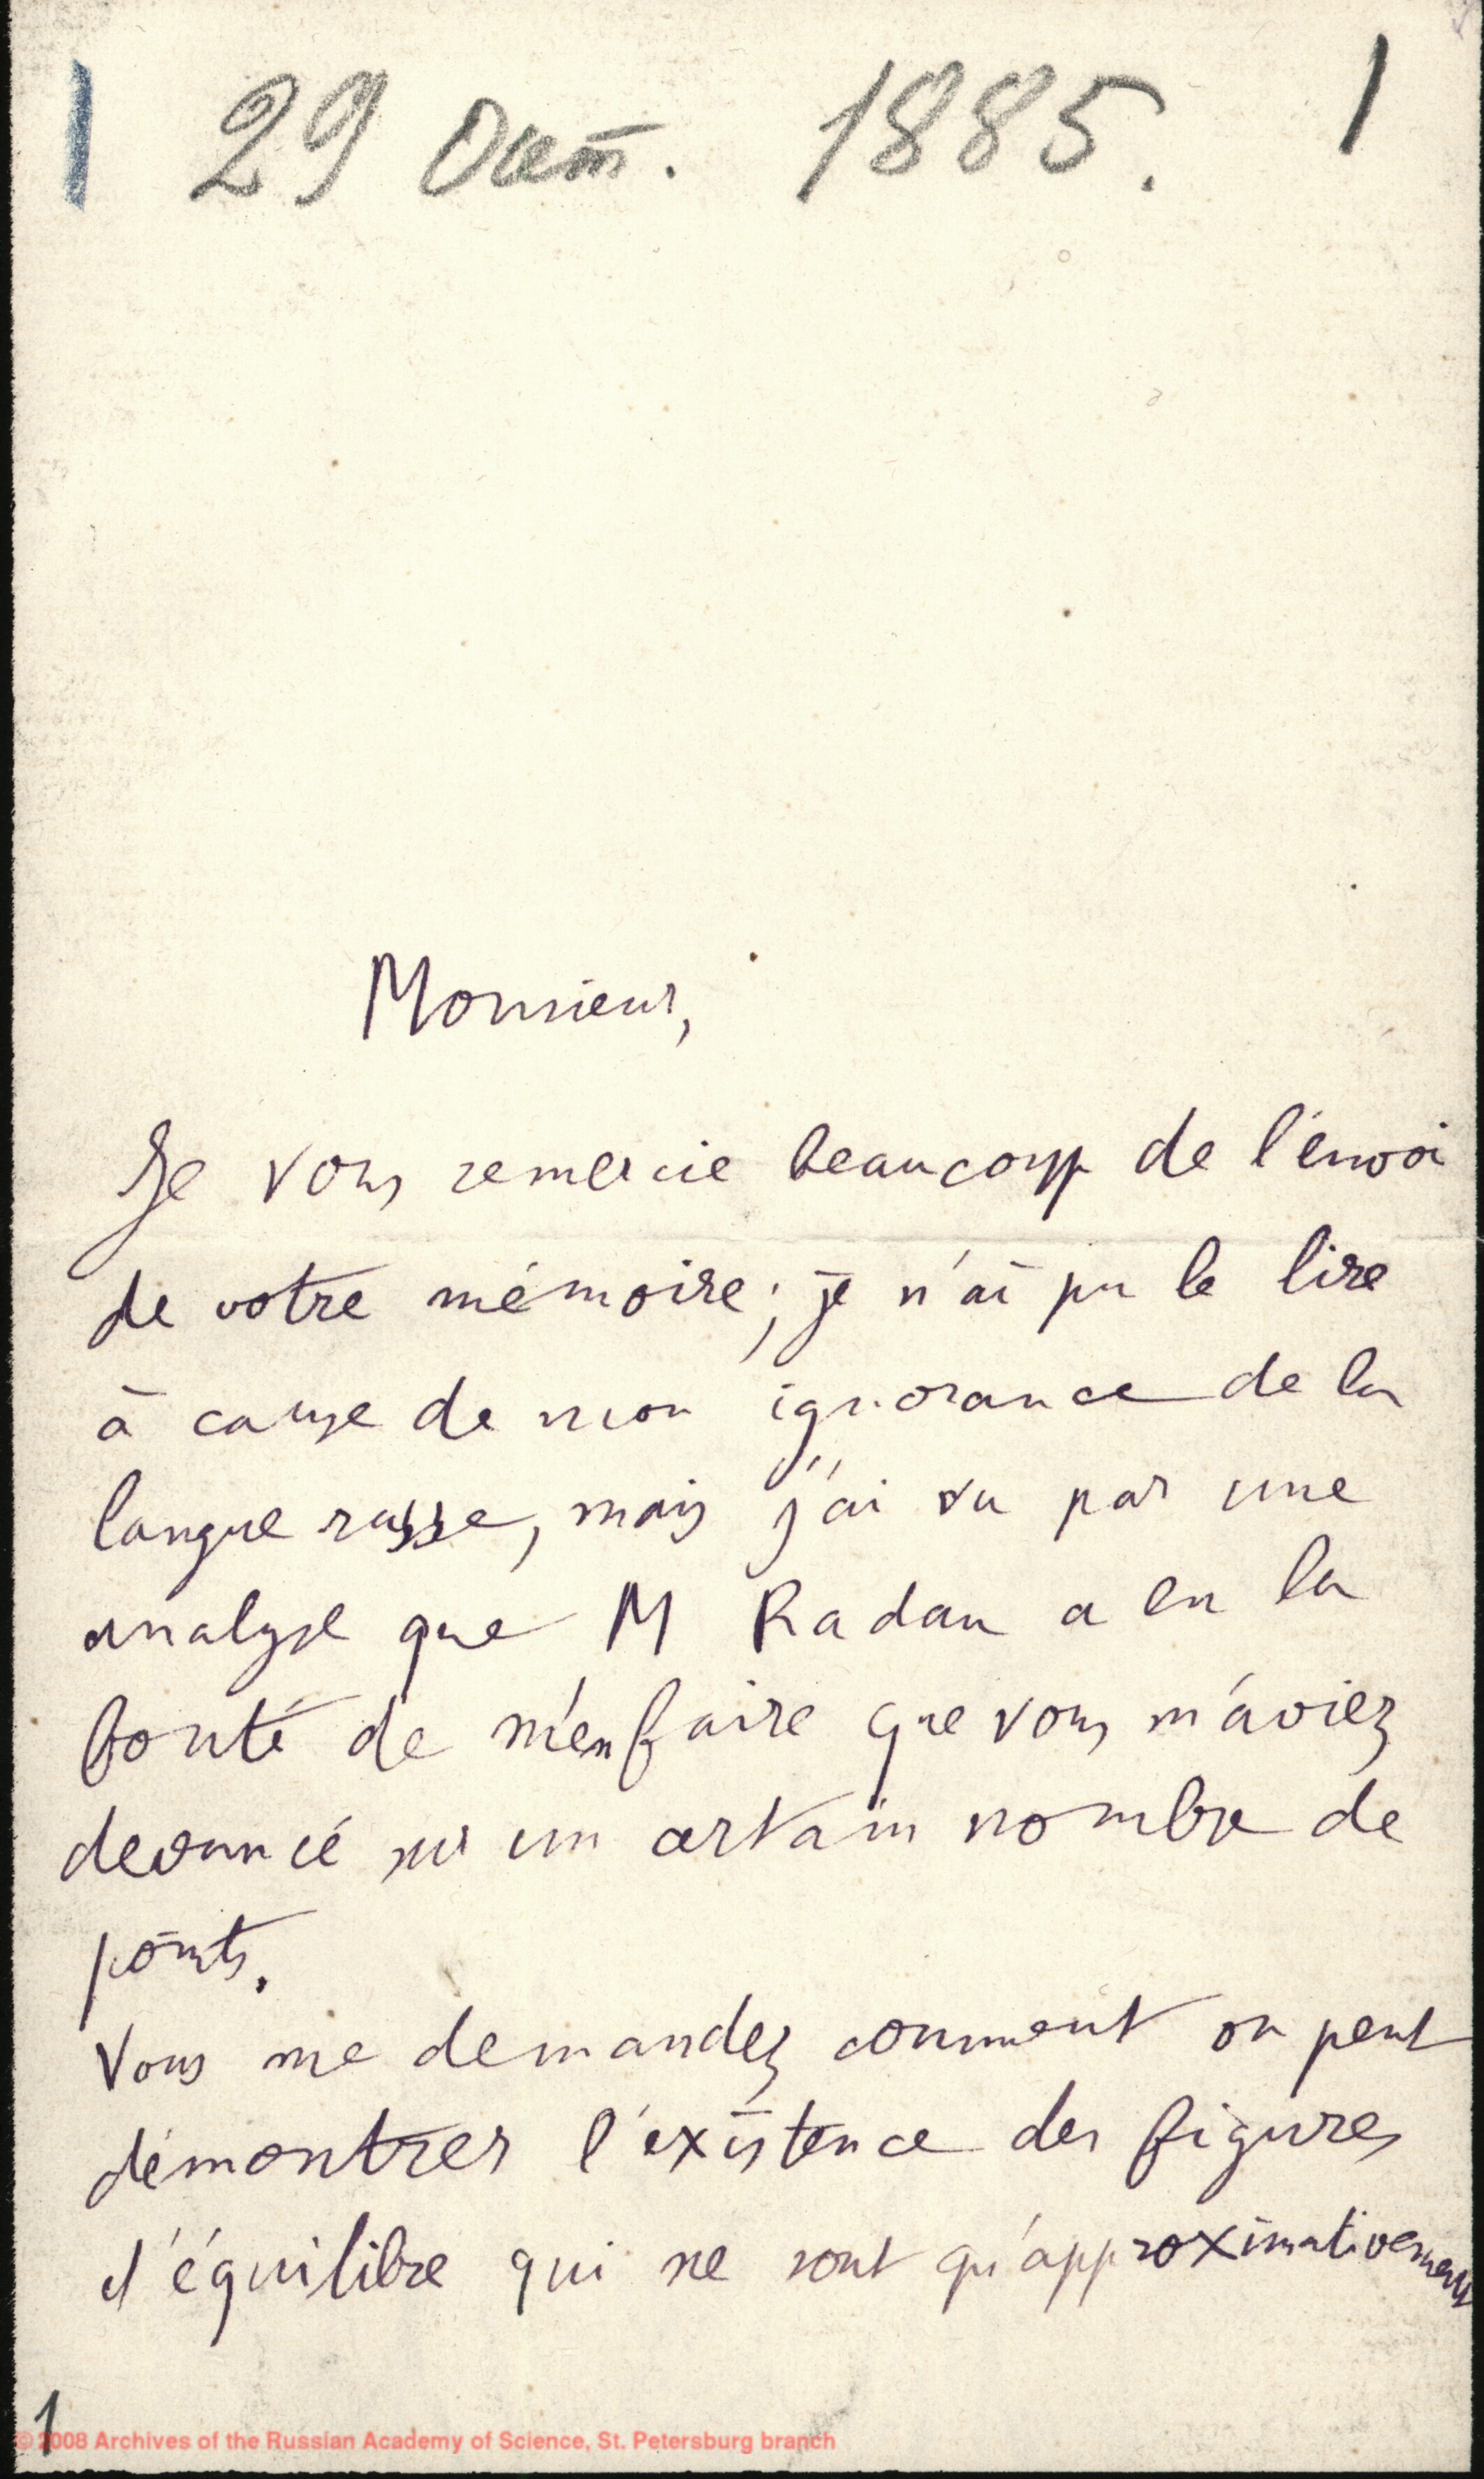 1 29 Окт. 1885. 1
Monsieur,
Je vous remercie beaucoup de l'envoi
de votre mémoire; je n'ai pu le lire
à cause de mon ignorance de la
langue russe, mais j'ai vu par une
analyse que M Radau a eu la
bonté de m'en faire que vous m'aviez
devancé sur un certain nombre de
points.
Vous me demandez comment on peut
démontrer l'existence des figures
d'équilibre qui ne sont qu'approximativement
1
© 2008 Archives of the Russian Academy of Science, St. Petersburg branch